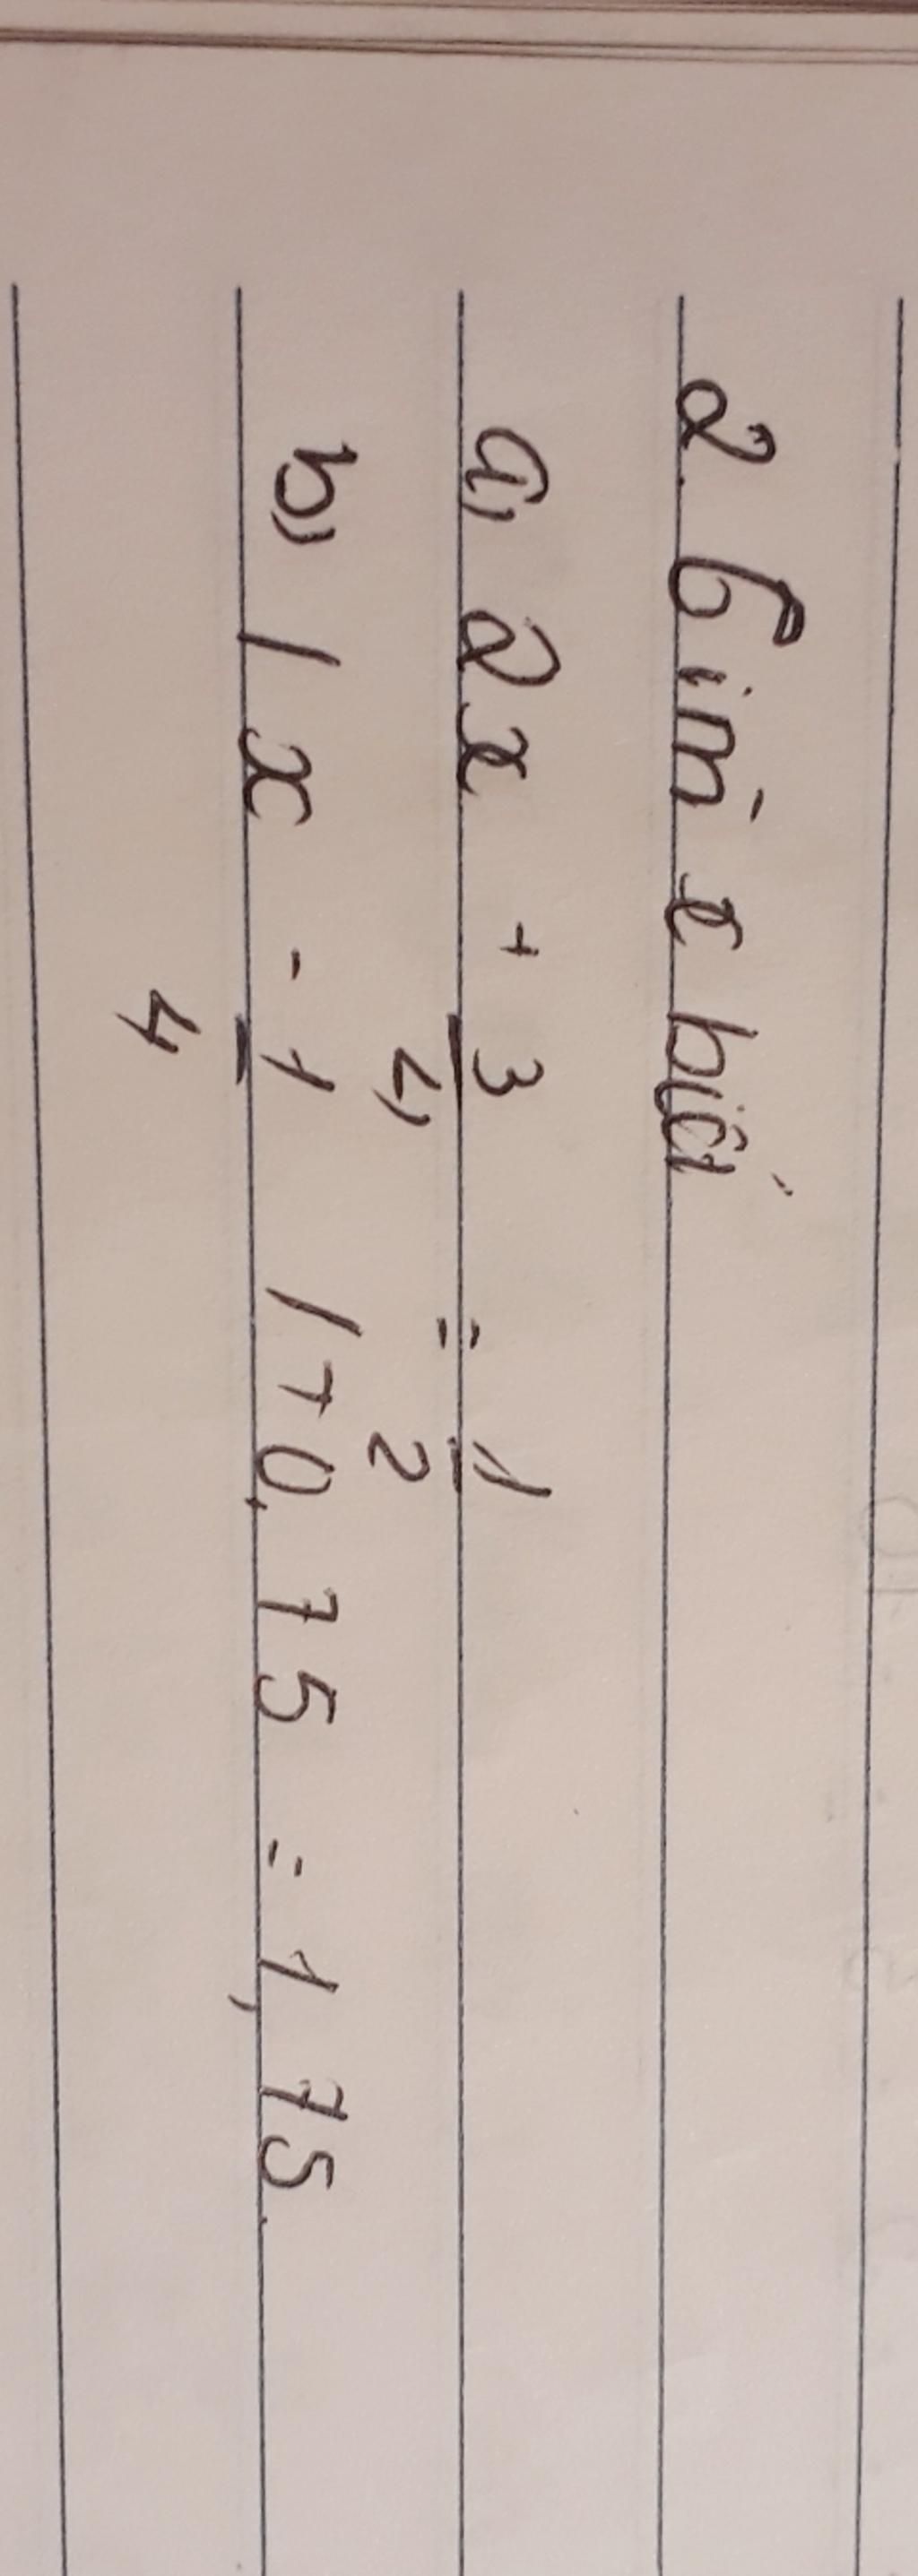 2. Tìm x biết
a, 2x + 3/4, = 1/2
b) |x - 1/4| + 0,75 = 1,75.